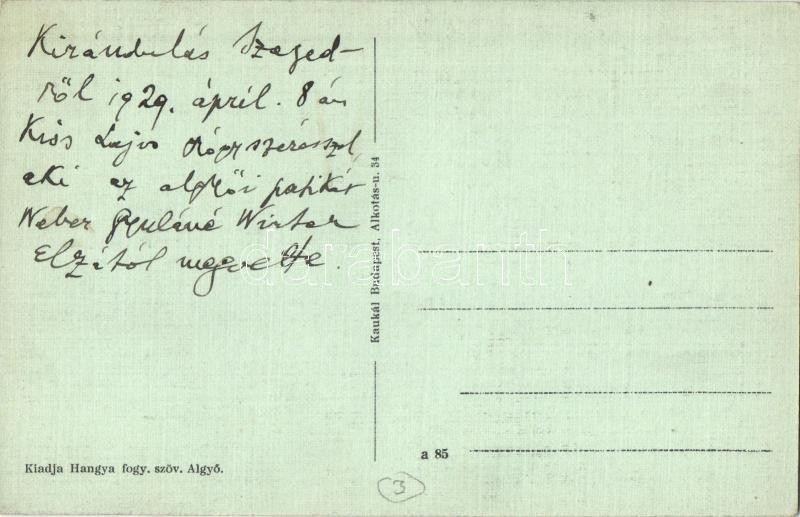 Kirándulás Szeged-
ről 1929. ápril. 8 án
Kiss Lajos gyógyszerésszel,
aki az algyői patikát
Weber Gyuláné Winter
Elzától megvette.
Kaukál Budapest, Alkotás-u. 34
darabanth
a 85
Kiadja Hangya fogy. szöv. Algyő.
3